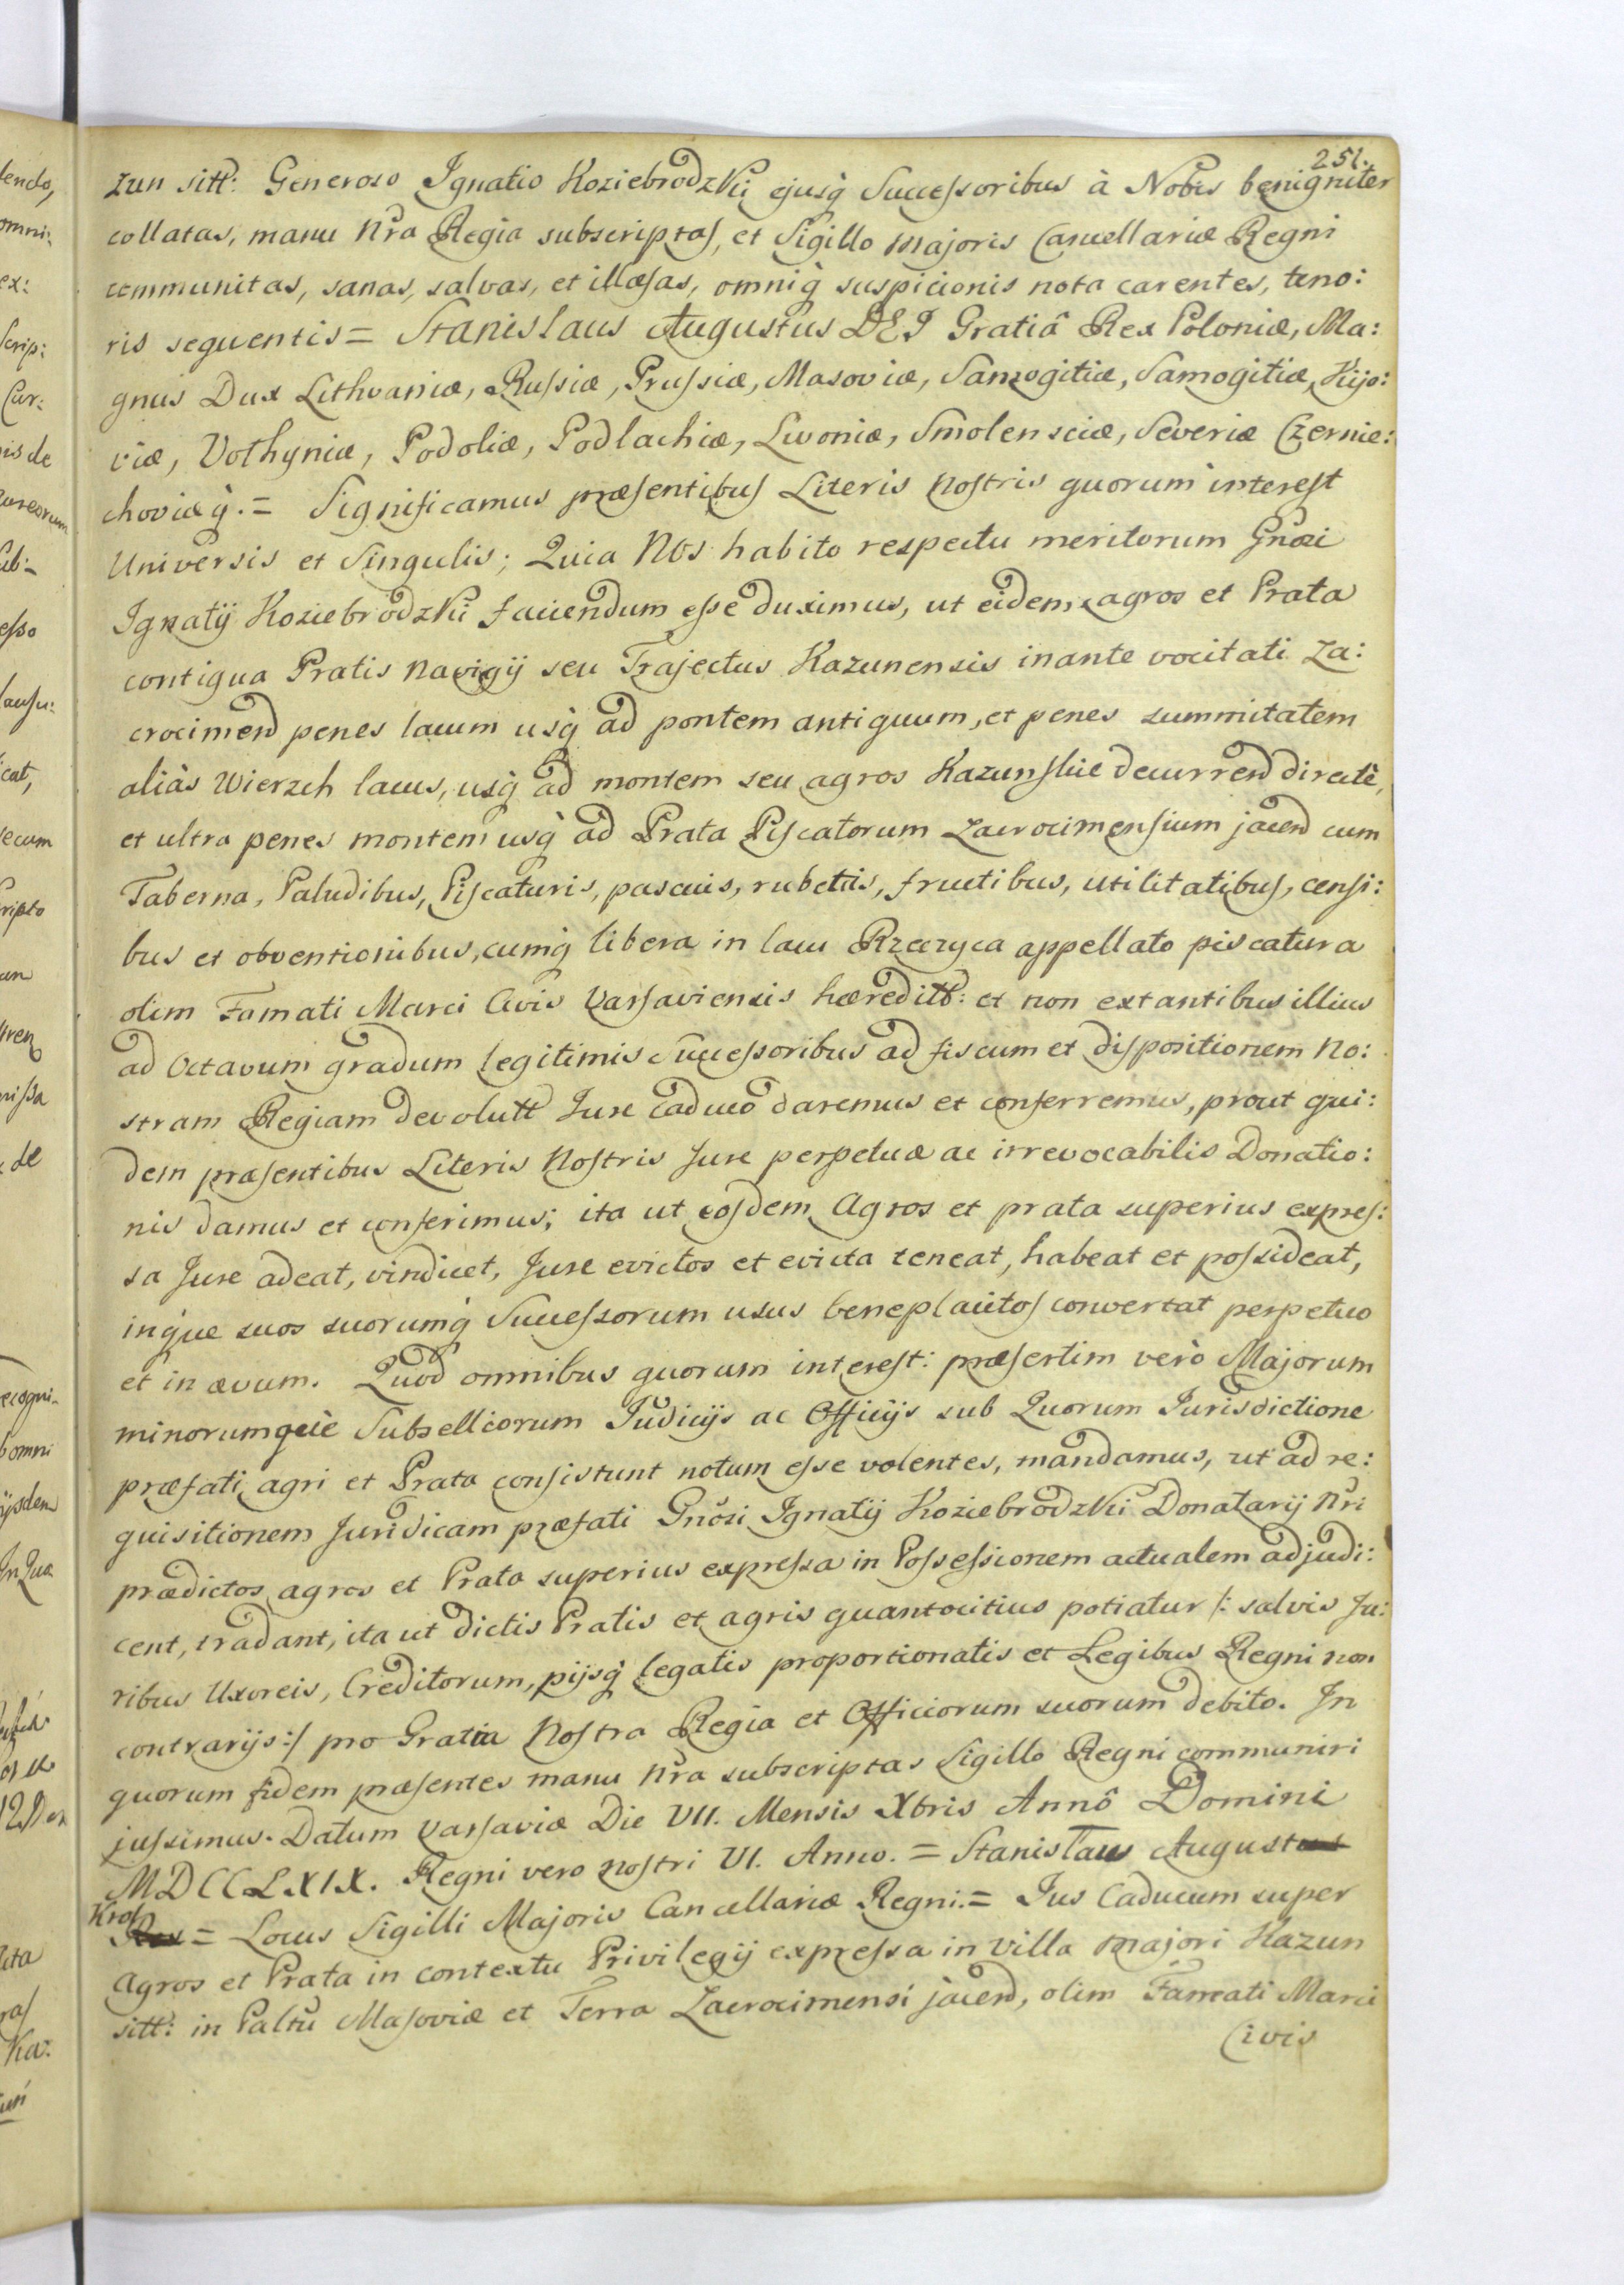 251.
zun sitt: Generoso Ignatio Koziebrodzkii ejusq̀ Successoribus à Nobis benigniter
collatas, manu Nr̃a Regia subscriptas, et Sigillo Majoris Cancellariæ Regni
communitas, sanas, salvas, et illæsas, omniq̀ suspicionis nota carentes, teno:
ris sequentis = Stanislaus Augustus DEI Gratiâ Rex Poloniæ, Ma:
gnus Dux Lithvaniæ, Russiæ, Prussiæ, Masoviæ, Samogitiæ, Samogitiæ, Kijo:
viæ, Volhyniæ, Podoliæ, Podlachiæ, Livoniæ, Smolensciæ, Severiæ Czernie:
choviæq̀. = Significamus præsentibus Literis Nostris quorum interest
Universis et Singulis; Quia Nos habito respectu meritorum Gnosi
Ignatij Koziebrodzkii faciendum esse duximus, ut eidem agros et Prata
contigua Pratis Navigij seu Trajectus Kazunensis inante vocitati Za:
crocimend penes lacum usq̀ ad pontem antiquum, et penes summitatem
aliàs Wierzch lacus, usq̀ ad montem seu agros Kazunskie decurrend directè,
et ultra penes montem usq̀ ad Prata Piscatorum Zacrocimensium jacend cum
Taberna, Paludibus, Piscaturis, pascuis, rubetis, fructibus, utilitatibus, censi:
bus et obventionibus, cumq̀ libera in lacu Rzeczyca appellato piscatura
olim Famati Marci Civis Varsaviensis hæreditt: et non extantibus illius
ad Octavum gradum legitimis Successoribus ad fiscum et dispositionem No:
stram Regiam devolutt Jure caduco daremus et conferremus, prout qui:
dem præsentibus Literis Nostris Jure perpetuæ ac irrevocabilis Donatio:
nis damus et conferimus; ita ut eosdem Agros et prata superius expres:
sa Jure adeat, vindicet, Jure evictos et evicta teneat, habeat et possideat,
inque suos suorumq̀ Successorum usus beneplacitos convertat perpetuo
et in ævum. Quod omnibus quorum interest: præsertim verò Majorum
minorumque Subselliorum Judicijs ac Officijs sub Quorum Jurisdictione
præfati agri et Prata consistunt notum esse volentes, mandamus, ut ad re:
quisitionem Juridicam præfati Gnosi Ignatij Koziebrodzki Donatarij Nr̃i
prædictos agros et Prata superius expressa in Possessionem actualem adjudi:
cent, tradant, ita ut dictis Pratis et agris quantocitius potiatur /: salvis Ju:
ribus Uxoreis, Creditorum, pijsq̀ legatis proportionatis et Legibus Regni non
contrarijs :/ pro Gratia Nostra Regia et Officiorum suorum debito. In
quorum fidem præsentes manu Nr̃a subscriptas Sigillo Regni communiri
jussimus. Datum Varsaviæ Die VII. Mensis Xbris Annô Domini
MDCCLXIX. Regni vero Nostri VI. Anno. = Stanislaus Augustus
Krol
Rex = Locus Sigilli Majoris Cancellariæ Regni. = Jus Caducum super
Agros et Prata in contextu Privilegij expressa in Villa Majori Kazun
sitt: in Paltũ Masoviæ et Terra Zacrocimensi jacend, olim Famati Marci
Civis